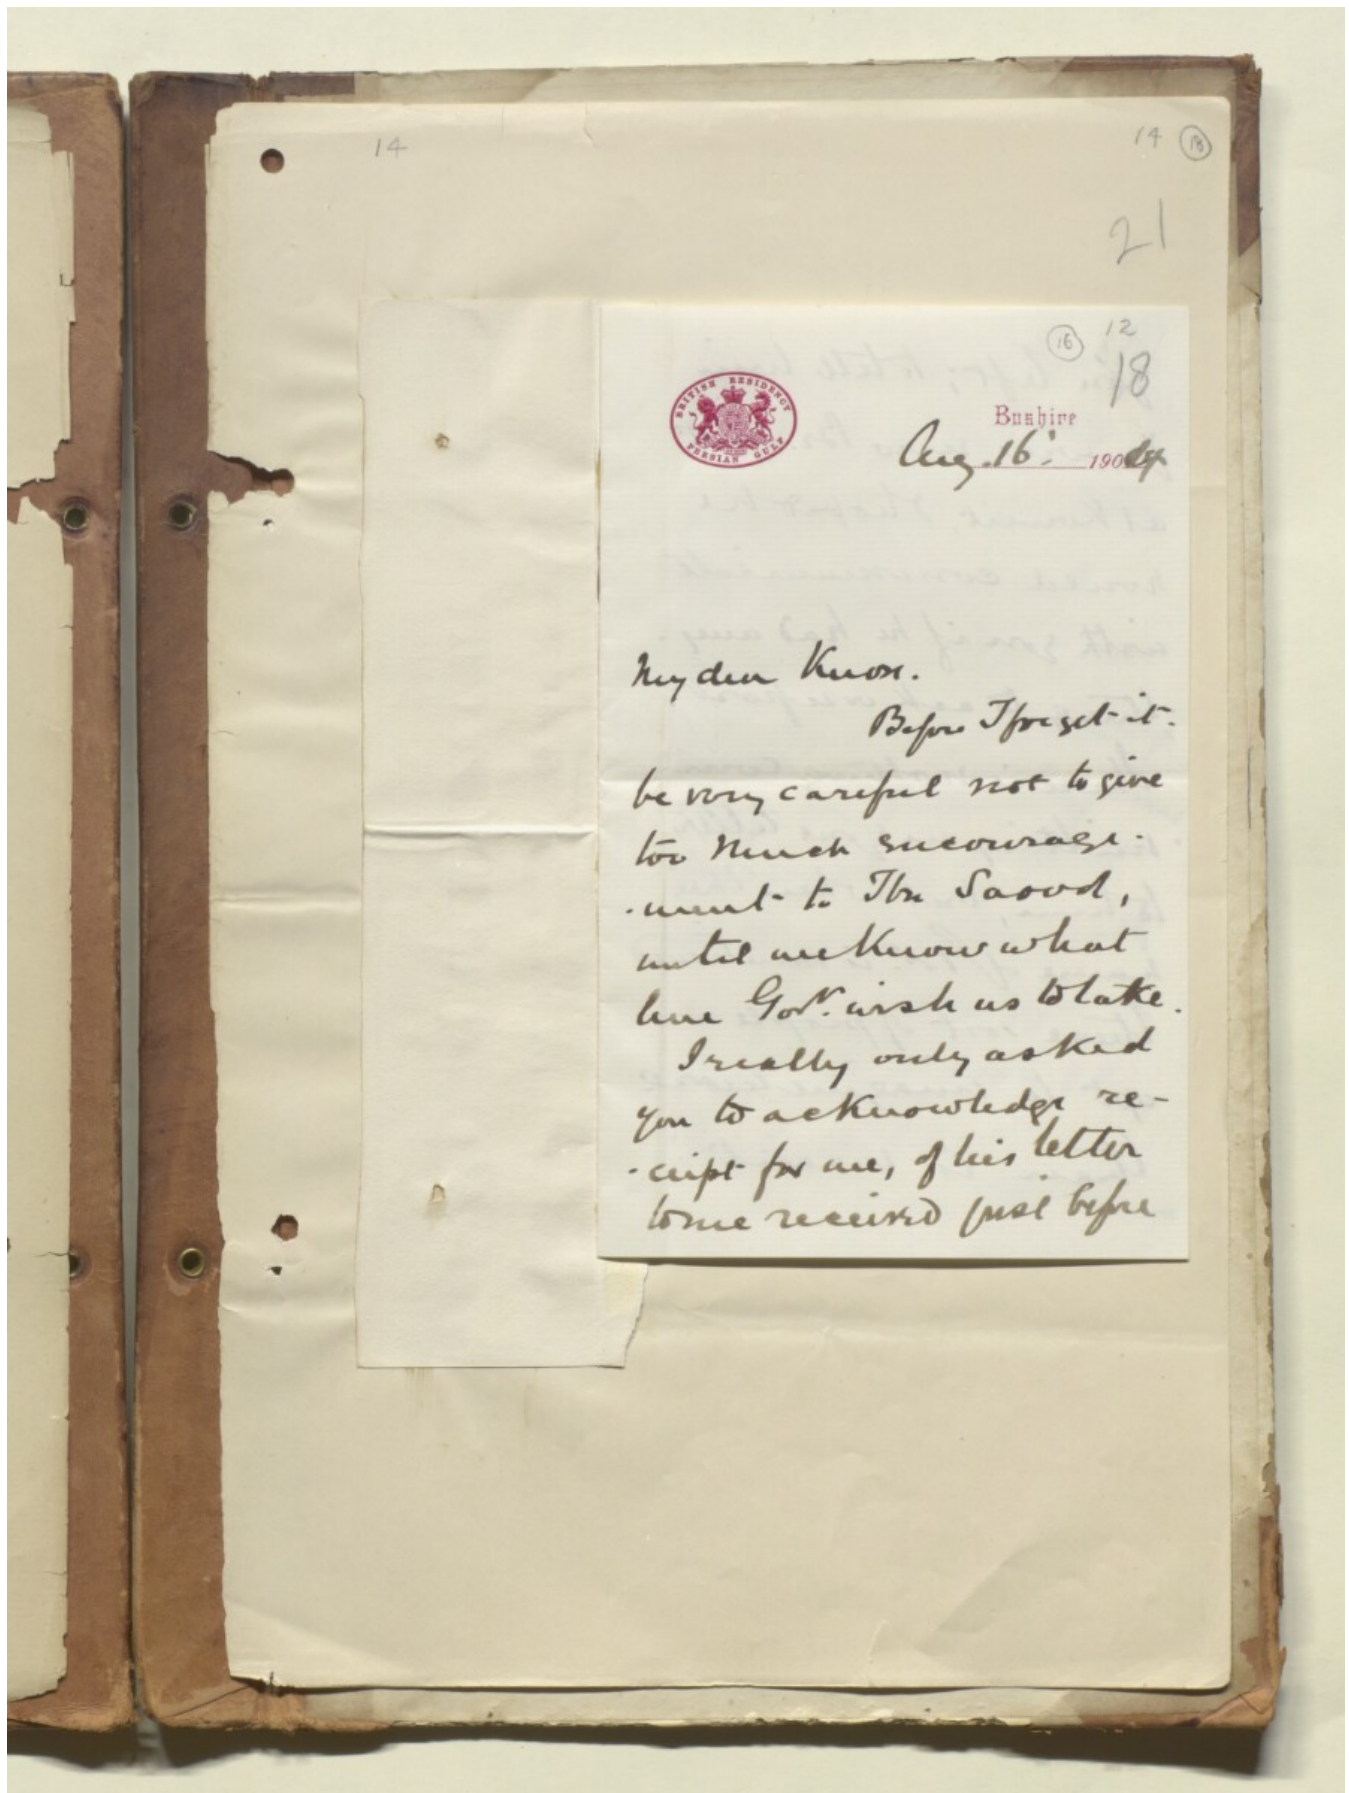 14
14 18
21
16 12
18
BRITISH RESIDENCY
PERSIAN GULF
Bushire
Aug. 16. 1904
My dear Knox.
Before I forget it.
be very careful not to give
too much encourage-
-ment to Ibn Saood,
until we know what
line Govt. wish us to take.
I really only asked
you to acknowledge re-
-ceipt for me, of his letter
to me received just before